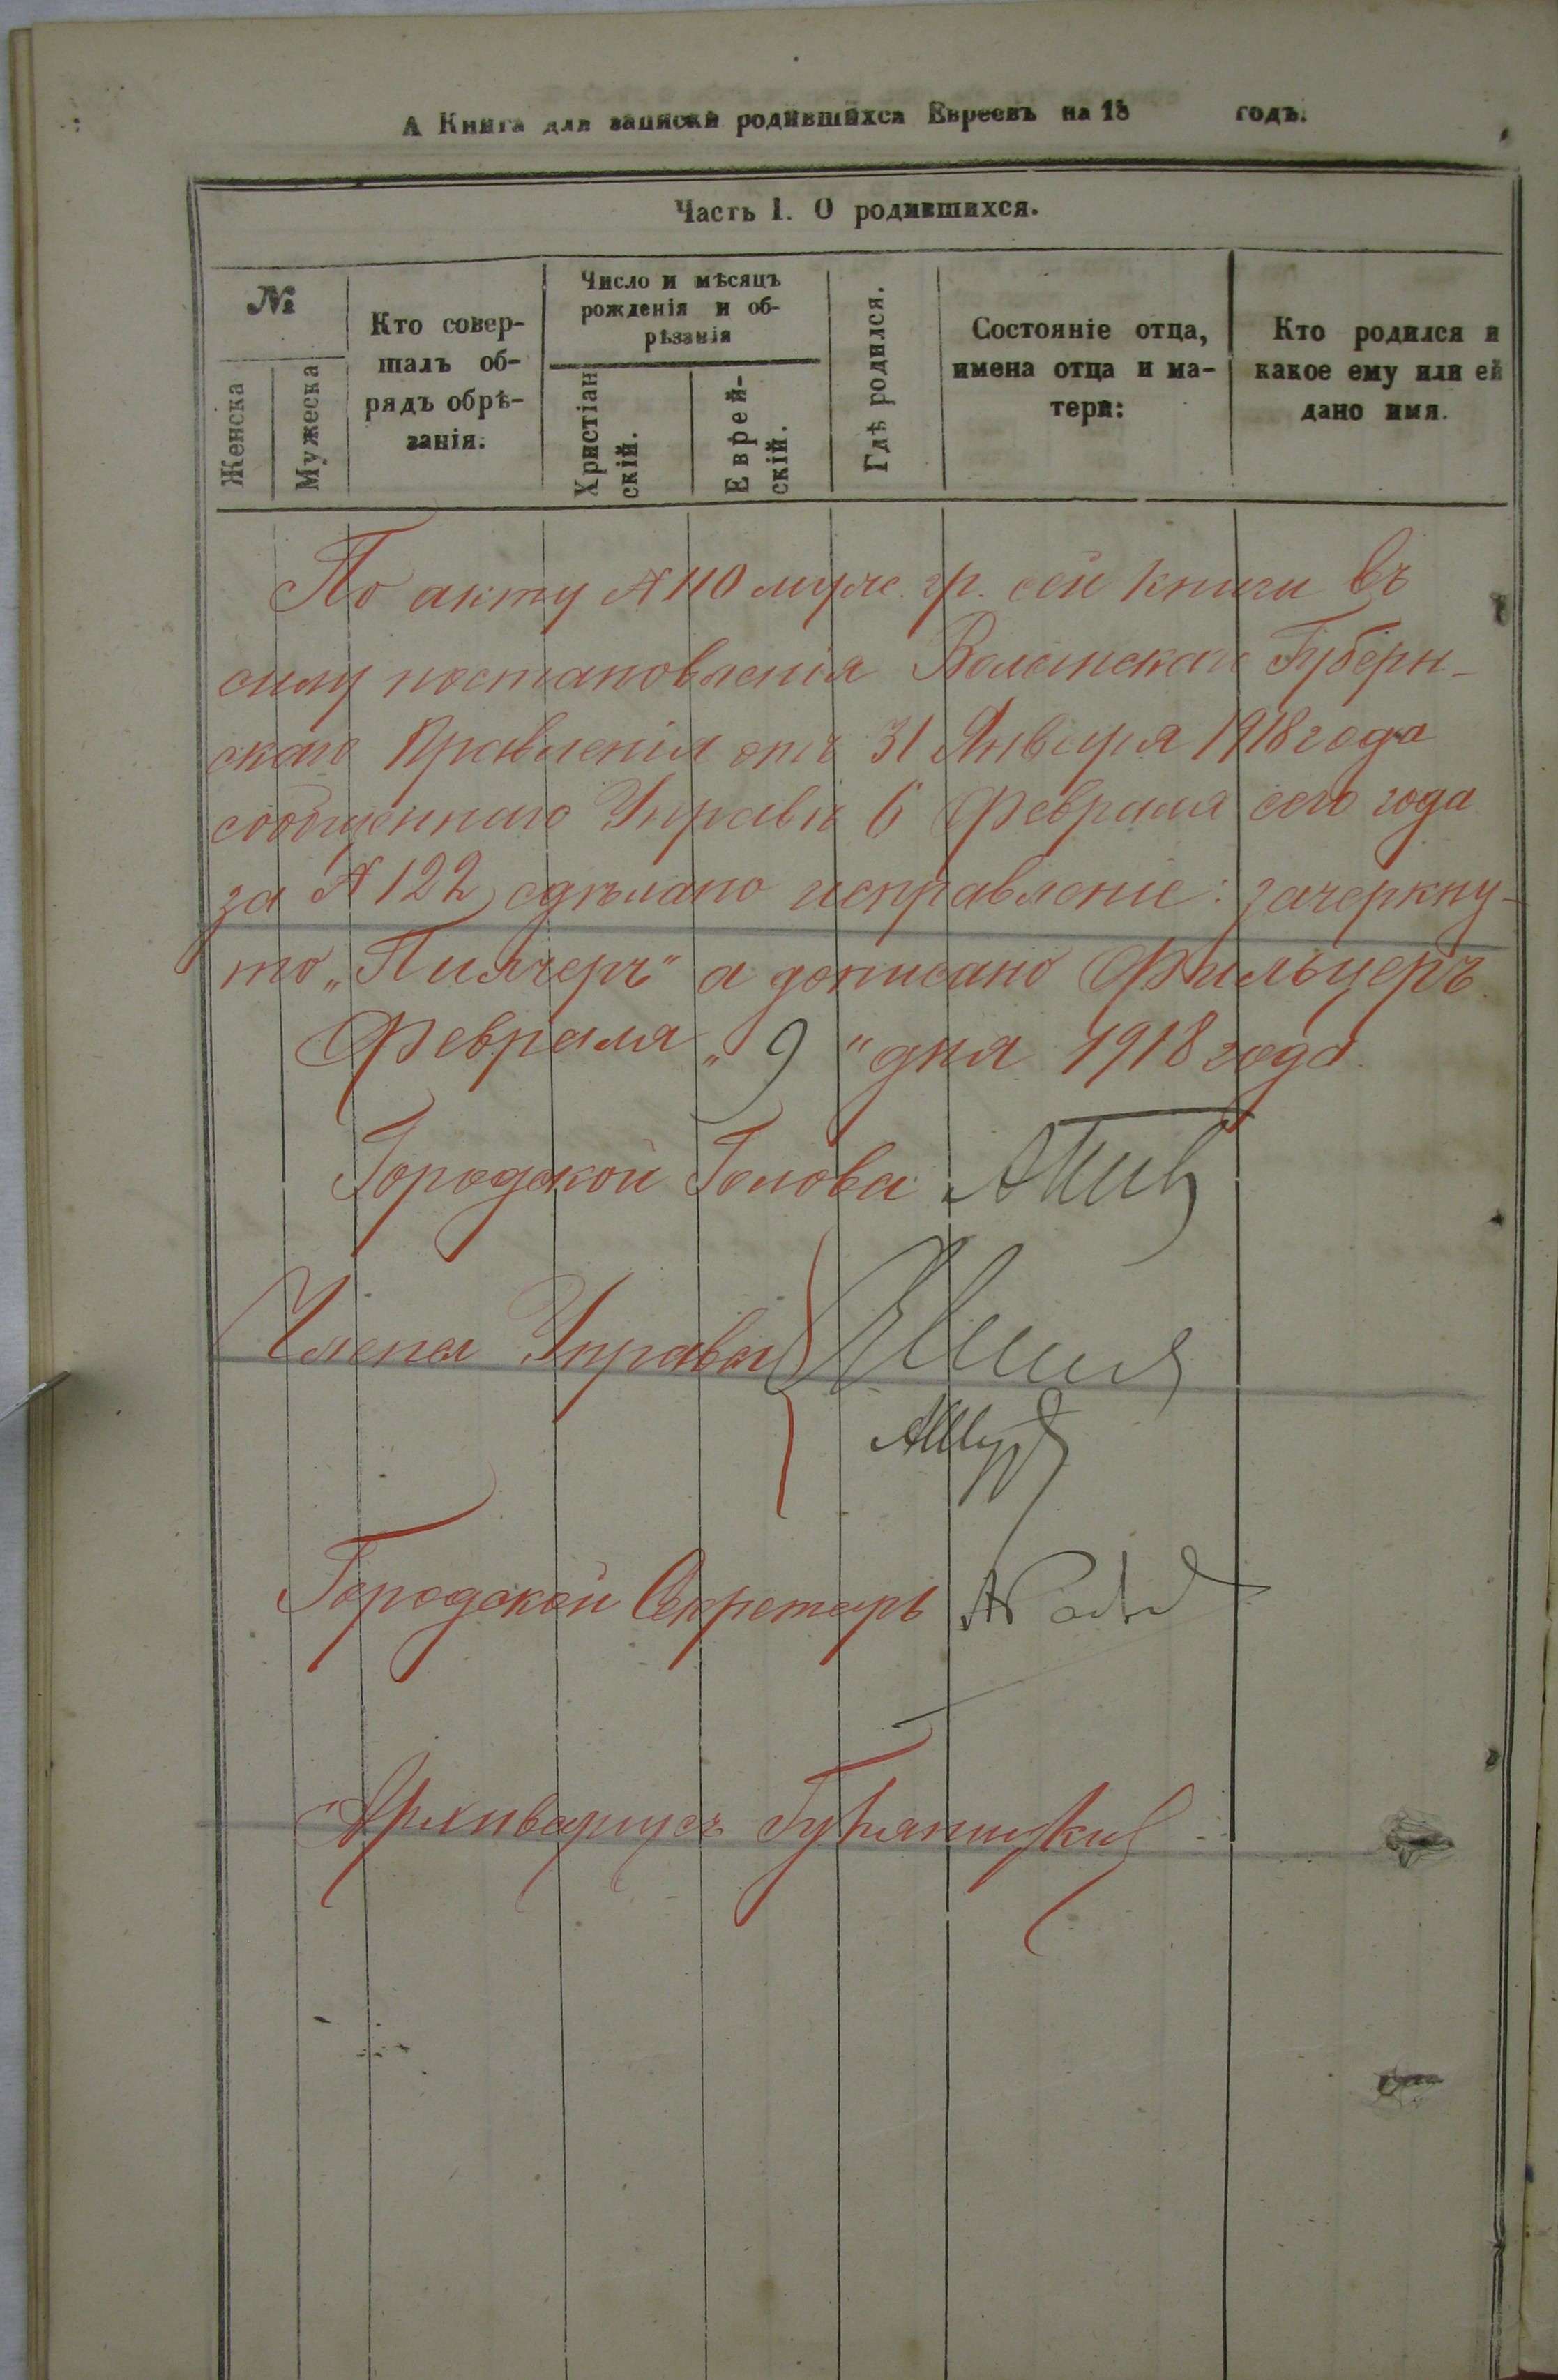 А Книга для записки родившихся Евреевъ на 18 годъ.
Часть I. О родившихся.
№
Женска
Мужеска
Кто совер-
шалъ об-
рядъ обрѣ-
занія.
Число и мѣсяцъ
рожденія и об-
рѣзанія
Христіан
скій.
Еврей-
скій.
Гдѣ родился.
Состояніе отца,
имена отца и ма-
тери:
Кто родился и
какое ему или ей
дано имя.
По акту № 110 муж. гр. сей книги въ
силу постановленія Волынскаго Губерн-
скаго Правленія отъ 31 Января 1918 года
сообщеннаго Управѣ 6 Февраля сего года
за № 122 сдѣлано исправленіе: зачеркну-
то „Пилчеръ" а дописано Фильцеръ.
Февраля „9" дня 1918 года.
Городской Голова
Члены Управы
Городской Секретарь
Архиваріусъ